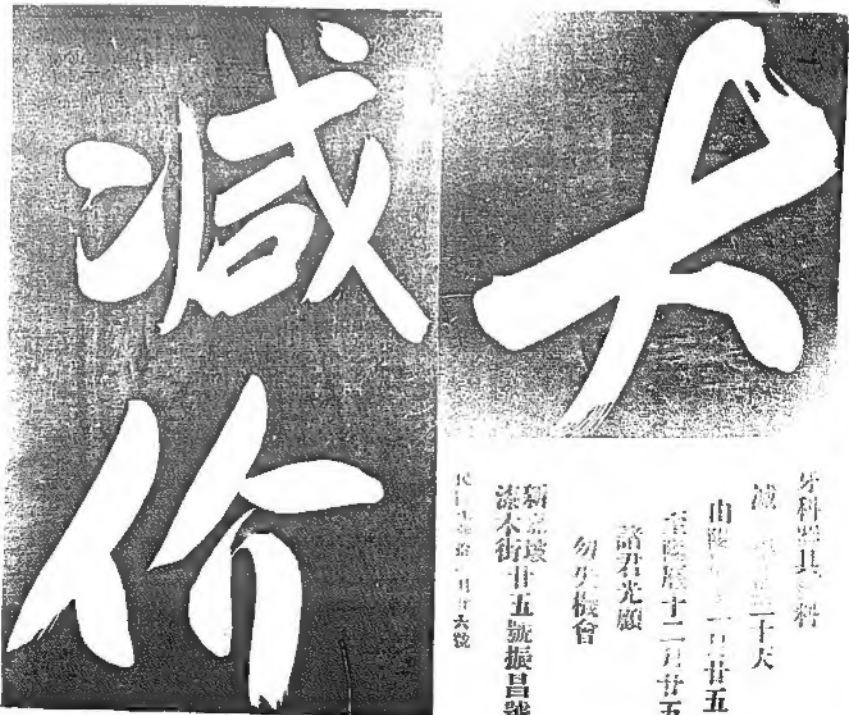 大
减价
牙科器具料
减三十天
由陽廿五
至陽曆十二月廿五
諸君光顧
勿失機會
新嘉坡
漆木街廿五號振昌號
月廿六號